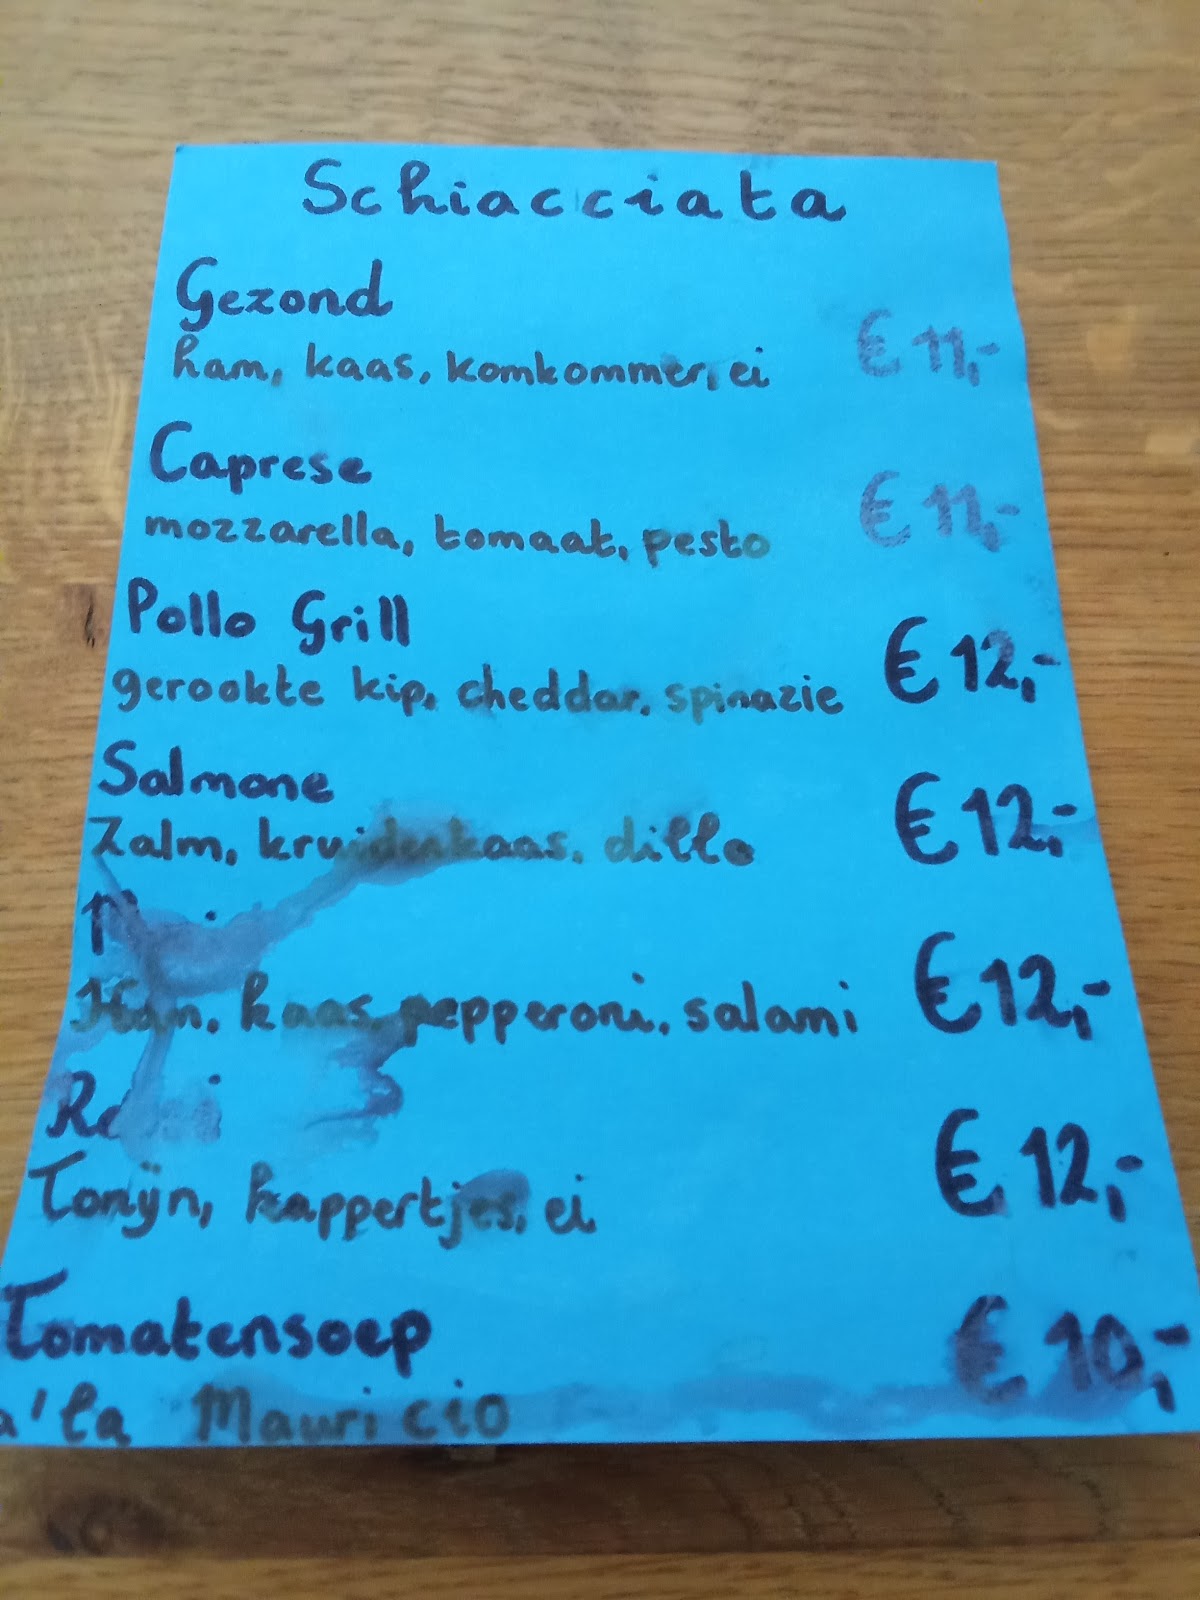 Schiacciata
Gezond
ham, kaas, komkommer, ei € 11,-
Caprese
mozzarella, tomaat, pesto € 11,-
Pollo Grill
gerookte kip, cheddar, spinazie € 12,-
Salmone
Zalm, kruidenkaas, dille € 12,-
Ham, kaas, pepperoni, salami € 12,-
Tonijn, kappertjes, ei € 12,-
Tomatensoep € 10,-
a'la Mauricio